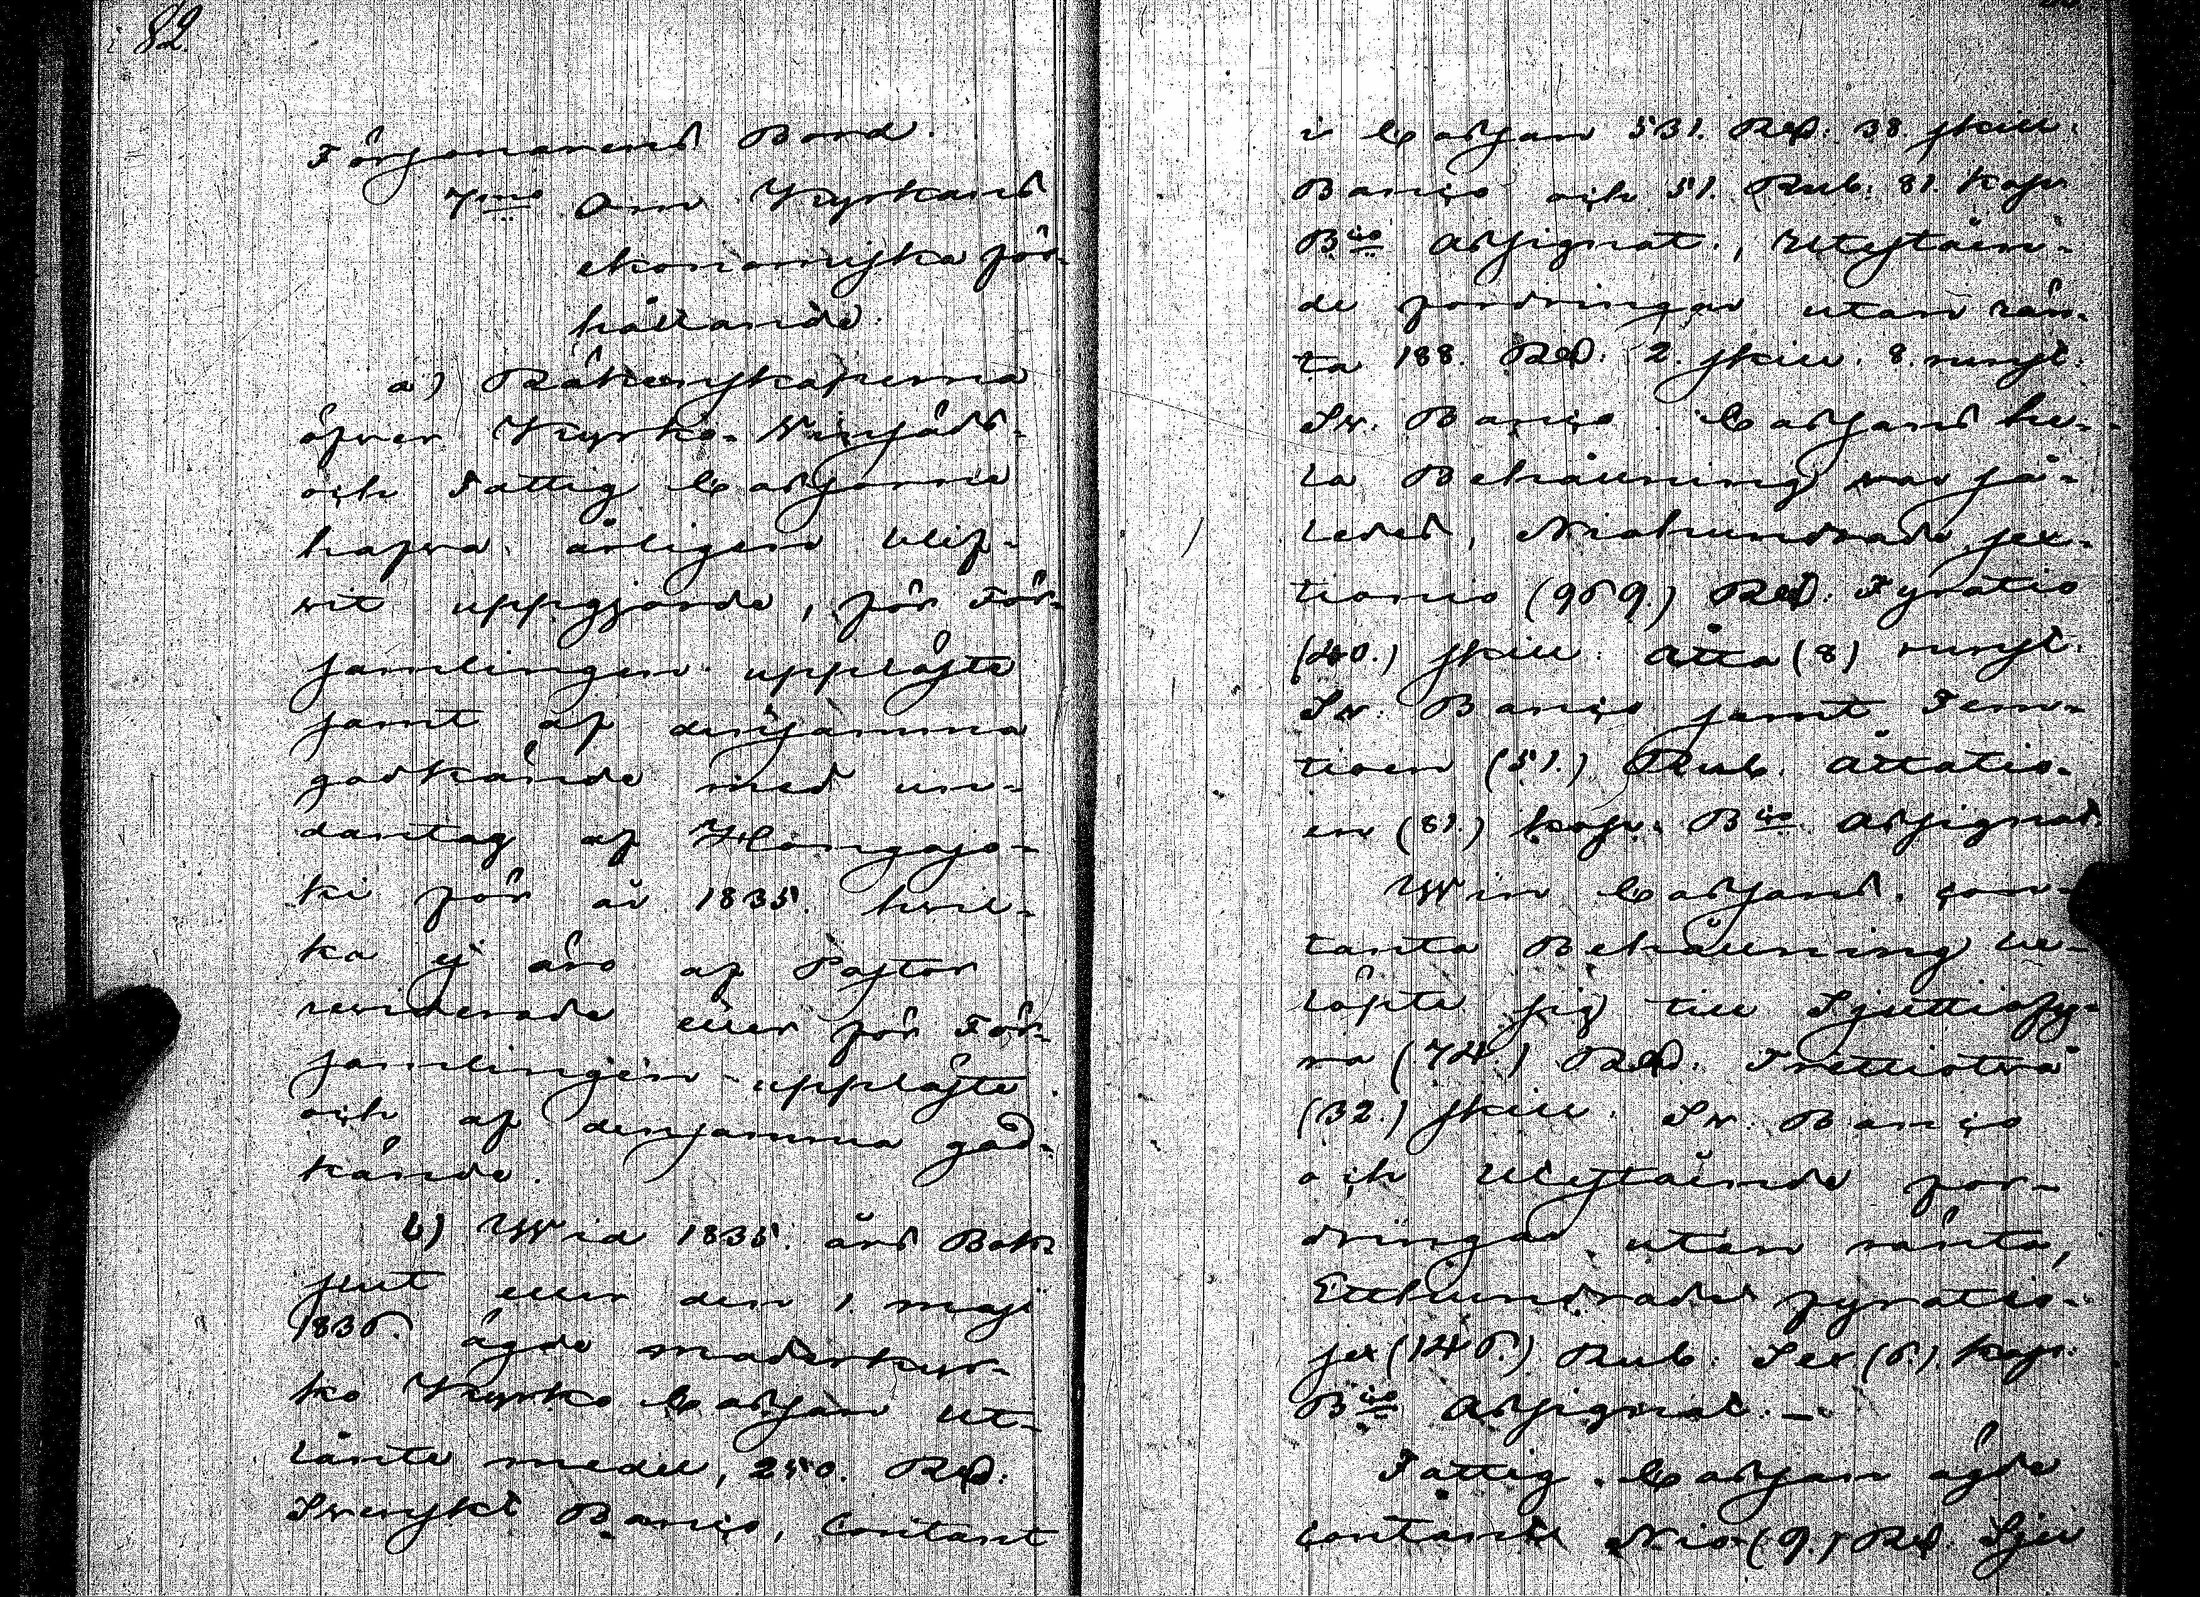 82.
Församarens Bord.
7mo Om Kyrkans
ekonomiska för-
hållande.
a) Räkenskaperna
öfver Kyrko- Winfäds-
och Fattig Cassorne
hafva årligen blif-
vit uppgjorde, för För-
samlingen uppläste
samt af densamma
godkände med un-
dantag af Haugajo-
ki för år 1835. hvil-
ka ej äro af Pastor
reviderade eller för För-
samlingen uppläste
och af densamma god-
kände.
b) Wid 1835. års Bok-
slut eller den 1. maji
1836. ägde moderkyr-
ko Kyrko Cassan ut-
lånte medel, 250. Rd.
Svenskt Banco, Contant
i Cassan 531. Rd. 38 skill.
Banco och 51. Rub. 81. kop.
Bco Assignat., utestäen-
de fordringar utan rän-
ta 188. Rd. 2. skill. 8. runst.
Sv. Banco. Cassans he-
la Behållning var så-
ledes, Niohundrade sex-
tionio (969.) Rd. Fyratio
(40.) skill. Åtta (8) runst.
Sv. Banco samt Fem-
tioen (51.) Rub. Åttatio-
en (81.) kop. Bco Assignat.
Win Cassans. con-
tanta Behållning be-
löpte sig till Sjuttiofy-
ra (74.) Rd. Trettiotvå
(32.) skill. Sv. Banco
och Utestäende for-
dringar utan ränta,
Etthundrade fyratio-
sex (146.) Rub. Sex (6.) kop.
Bco Assignat. —
Fattig-Cassan ägde
contant Nio (9.) Rd. Sju